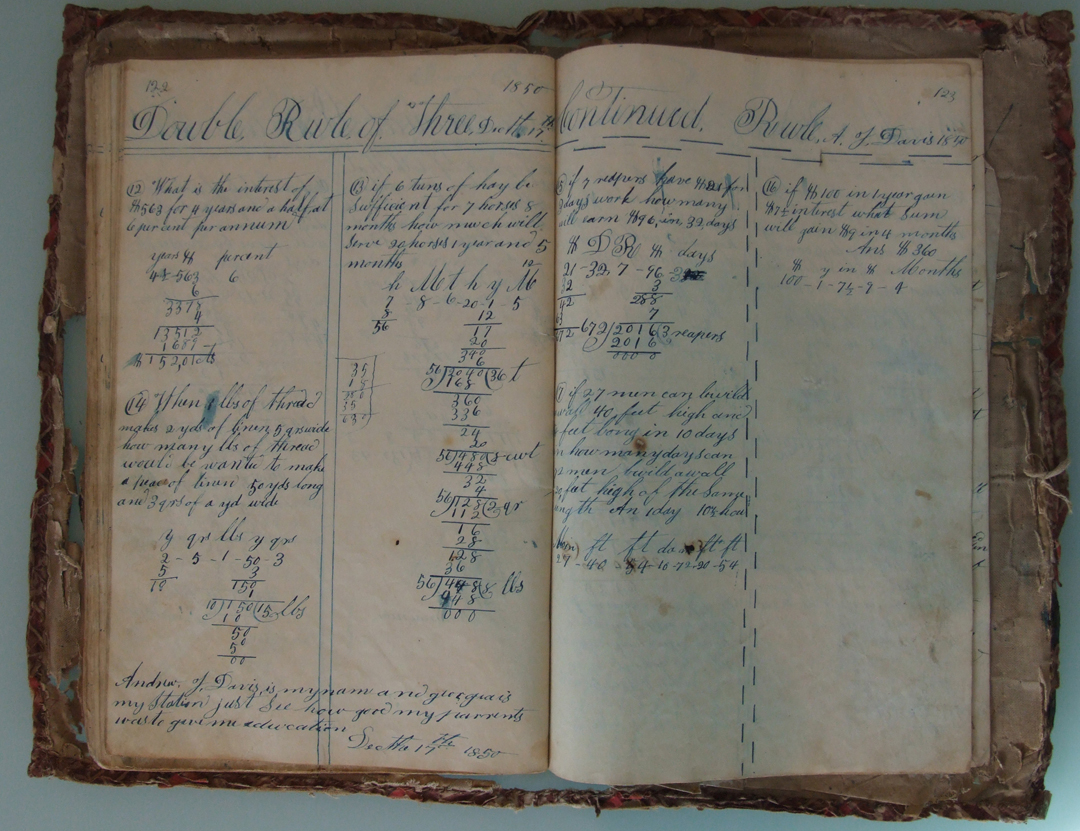 122
1850
Double Rule of Three Dec the 17th
12 What is the interest of
$563 for 4 years and a half at
6 percent per annum
years $ percent
4½-563 6
6
3378
4
13512
1689
$152,01cts
14 When 1 lbs of thread
makes 2 yds of linen, 5 qrs wide
how many lbs of thread
would be wanted to make
a piece of linen 50 yds long
and 3 qrs of a yd wide
y qr lbs y qr
2-5-1-50-3
5 3
10 150
10)150(15 lbs
10
50
50
00
13 if 6 tuns of hay be
sufficient for 7 horses 8
months how much will
serve 20 horses 1 year and 5
months
12
h M t h y M
7-8-6-20-1-5
8 12
56 17
20
340
6
56)2040(36 t
168
360
336
24
20
56)480(8 cwt
448
32
4
56)128(2 qr
112
16
28
128
36
56)448(8 lbs
448
000
35
18
280
35
630
Andrew. J. Davis, is my name and georgia is
my station just See how good my parrents
was to give me educcation
Dec the 17th 1850
123
Continued. Rule A. J. Davis 1850
if 7 reapers have $ for
days work how many
will earn $96, in 32 days
$ D R $ days
21-32, 7-96
32 3
42 288
7
672)2016(3 reapers
2016
0000
16 if $100 in 1 year gain
$7½ interest what Sum
will gain $9 in 4 months
Ans $360
$ y in $ Months
100-1-7½-9-4
if 27 men can build
wall 40 feet high and
feet long in 10 days
how many days can
men build a wall
feet high of the Same
length
ft ft da ft ft